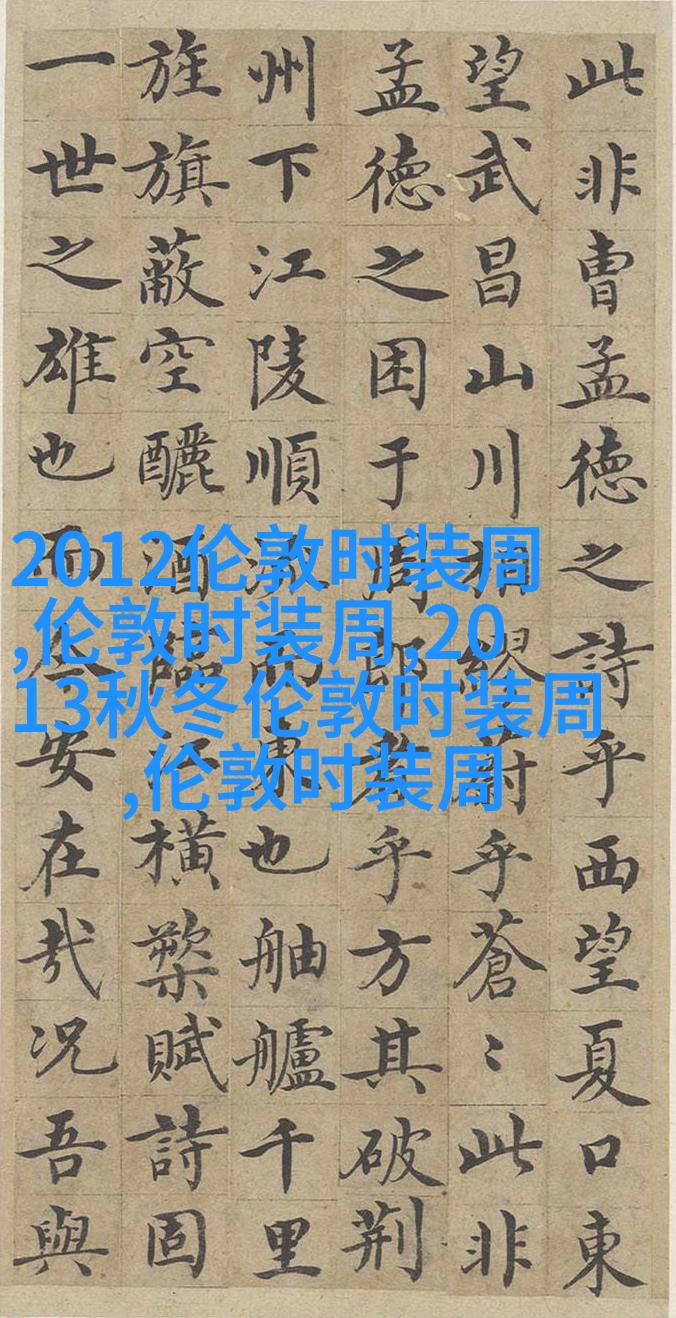 此非曹孟德之詩乎西望夏口東
望武昌山川相繆蔚乎蒼〻此非
孟德之困于周郎者乎方其破荆
州下江陵順流而東也舳艫千里
旌旗蔽空釃酒臨江橫槊賦詩固
一世之雄也而今安在哉况吾與
2012伦敦时装周
,伦敦时装周,20
13秋冬伦敦时装周
,伦敦时装周